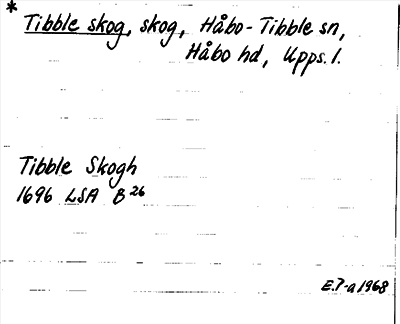 * Tibble skog, skog, Håbo-Tibble sn,
Håbo hd, Upps. l.
Tibble Skogh
1696 LSA B 26
E.T-a 1968